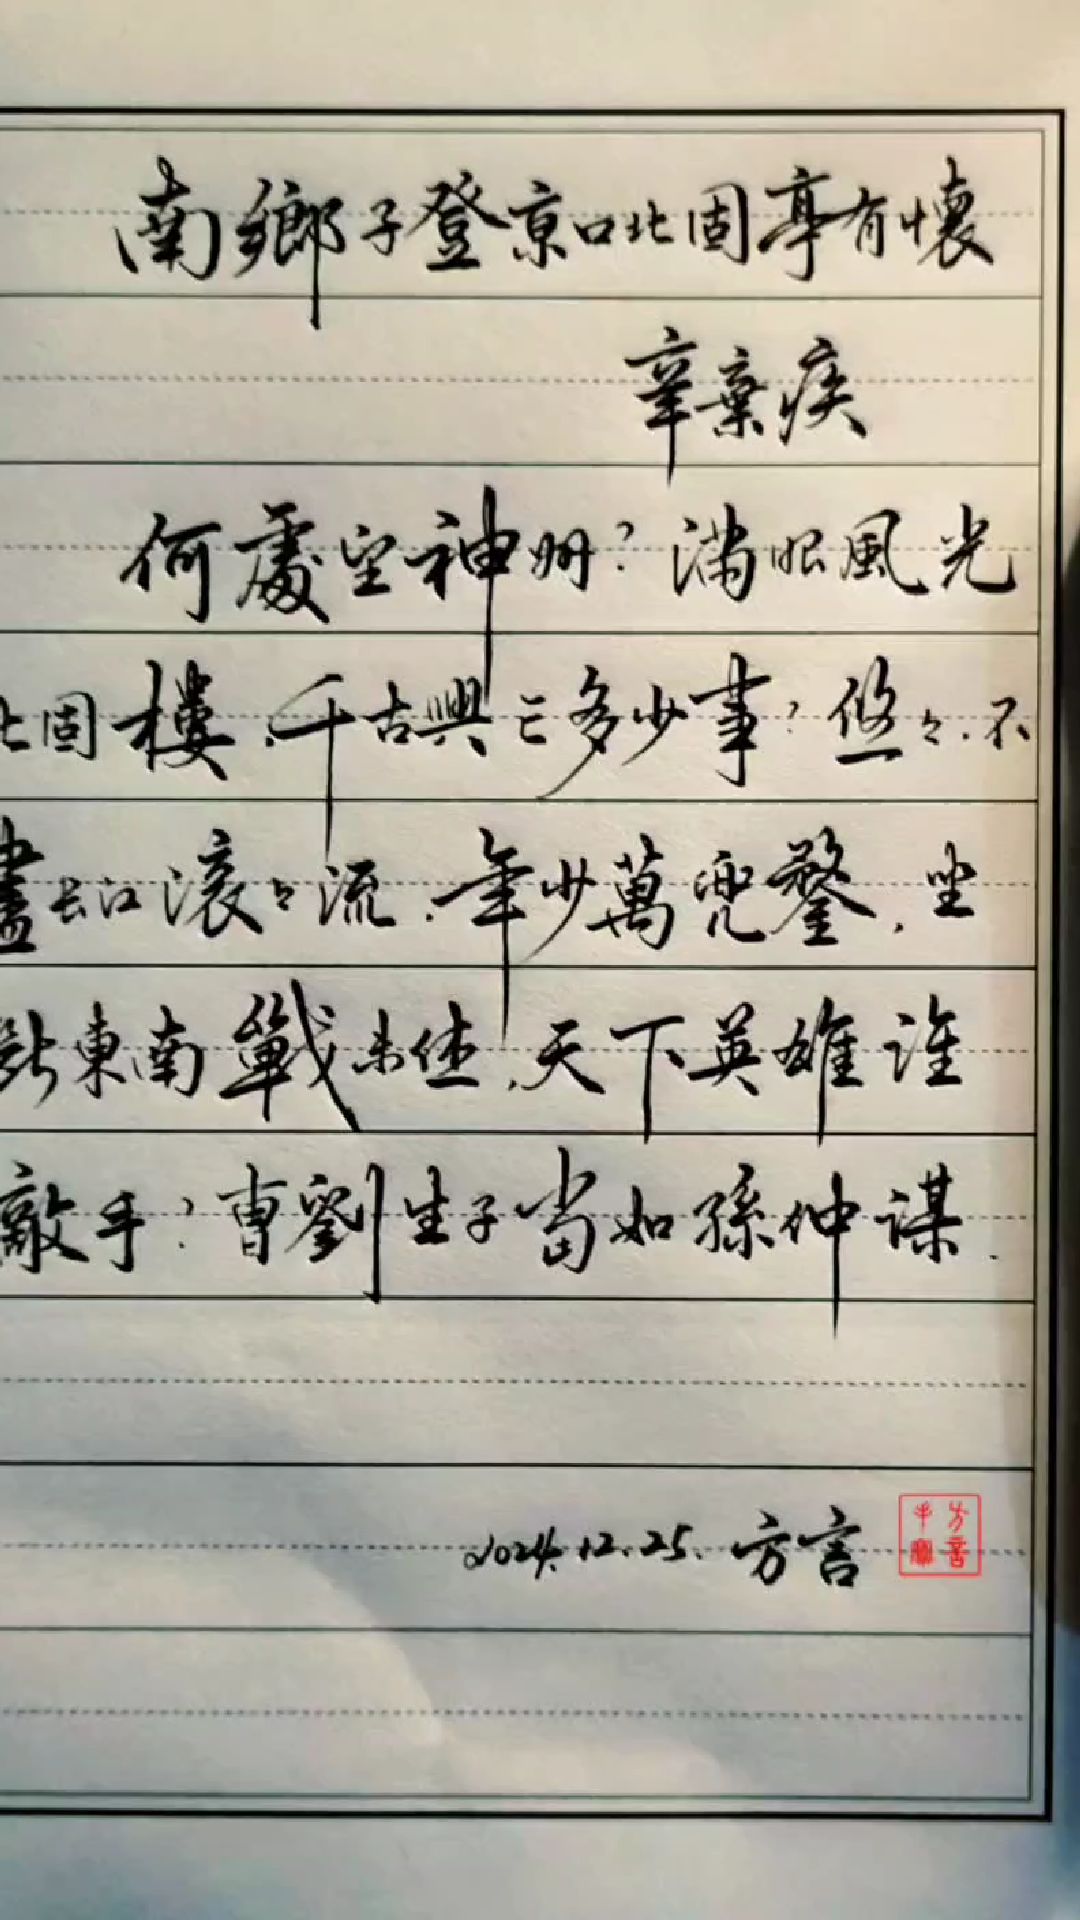 南鄉子登京口北固亭有懷
辛棄疾
何處望神州？滿眼風光
北固樓，千古興亡多少事？悠々，不
盡長江滾々流，年少萬兜鍪，坐
斷東南戰未休，天下英雄誰
敵手？曹劉生子當如孫仲謀.
2024.12.25. 方言
方言